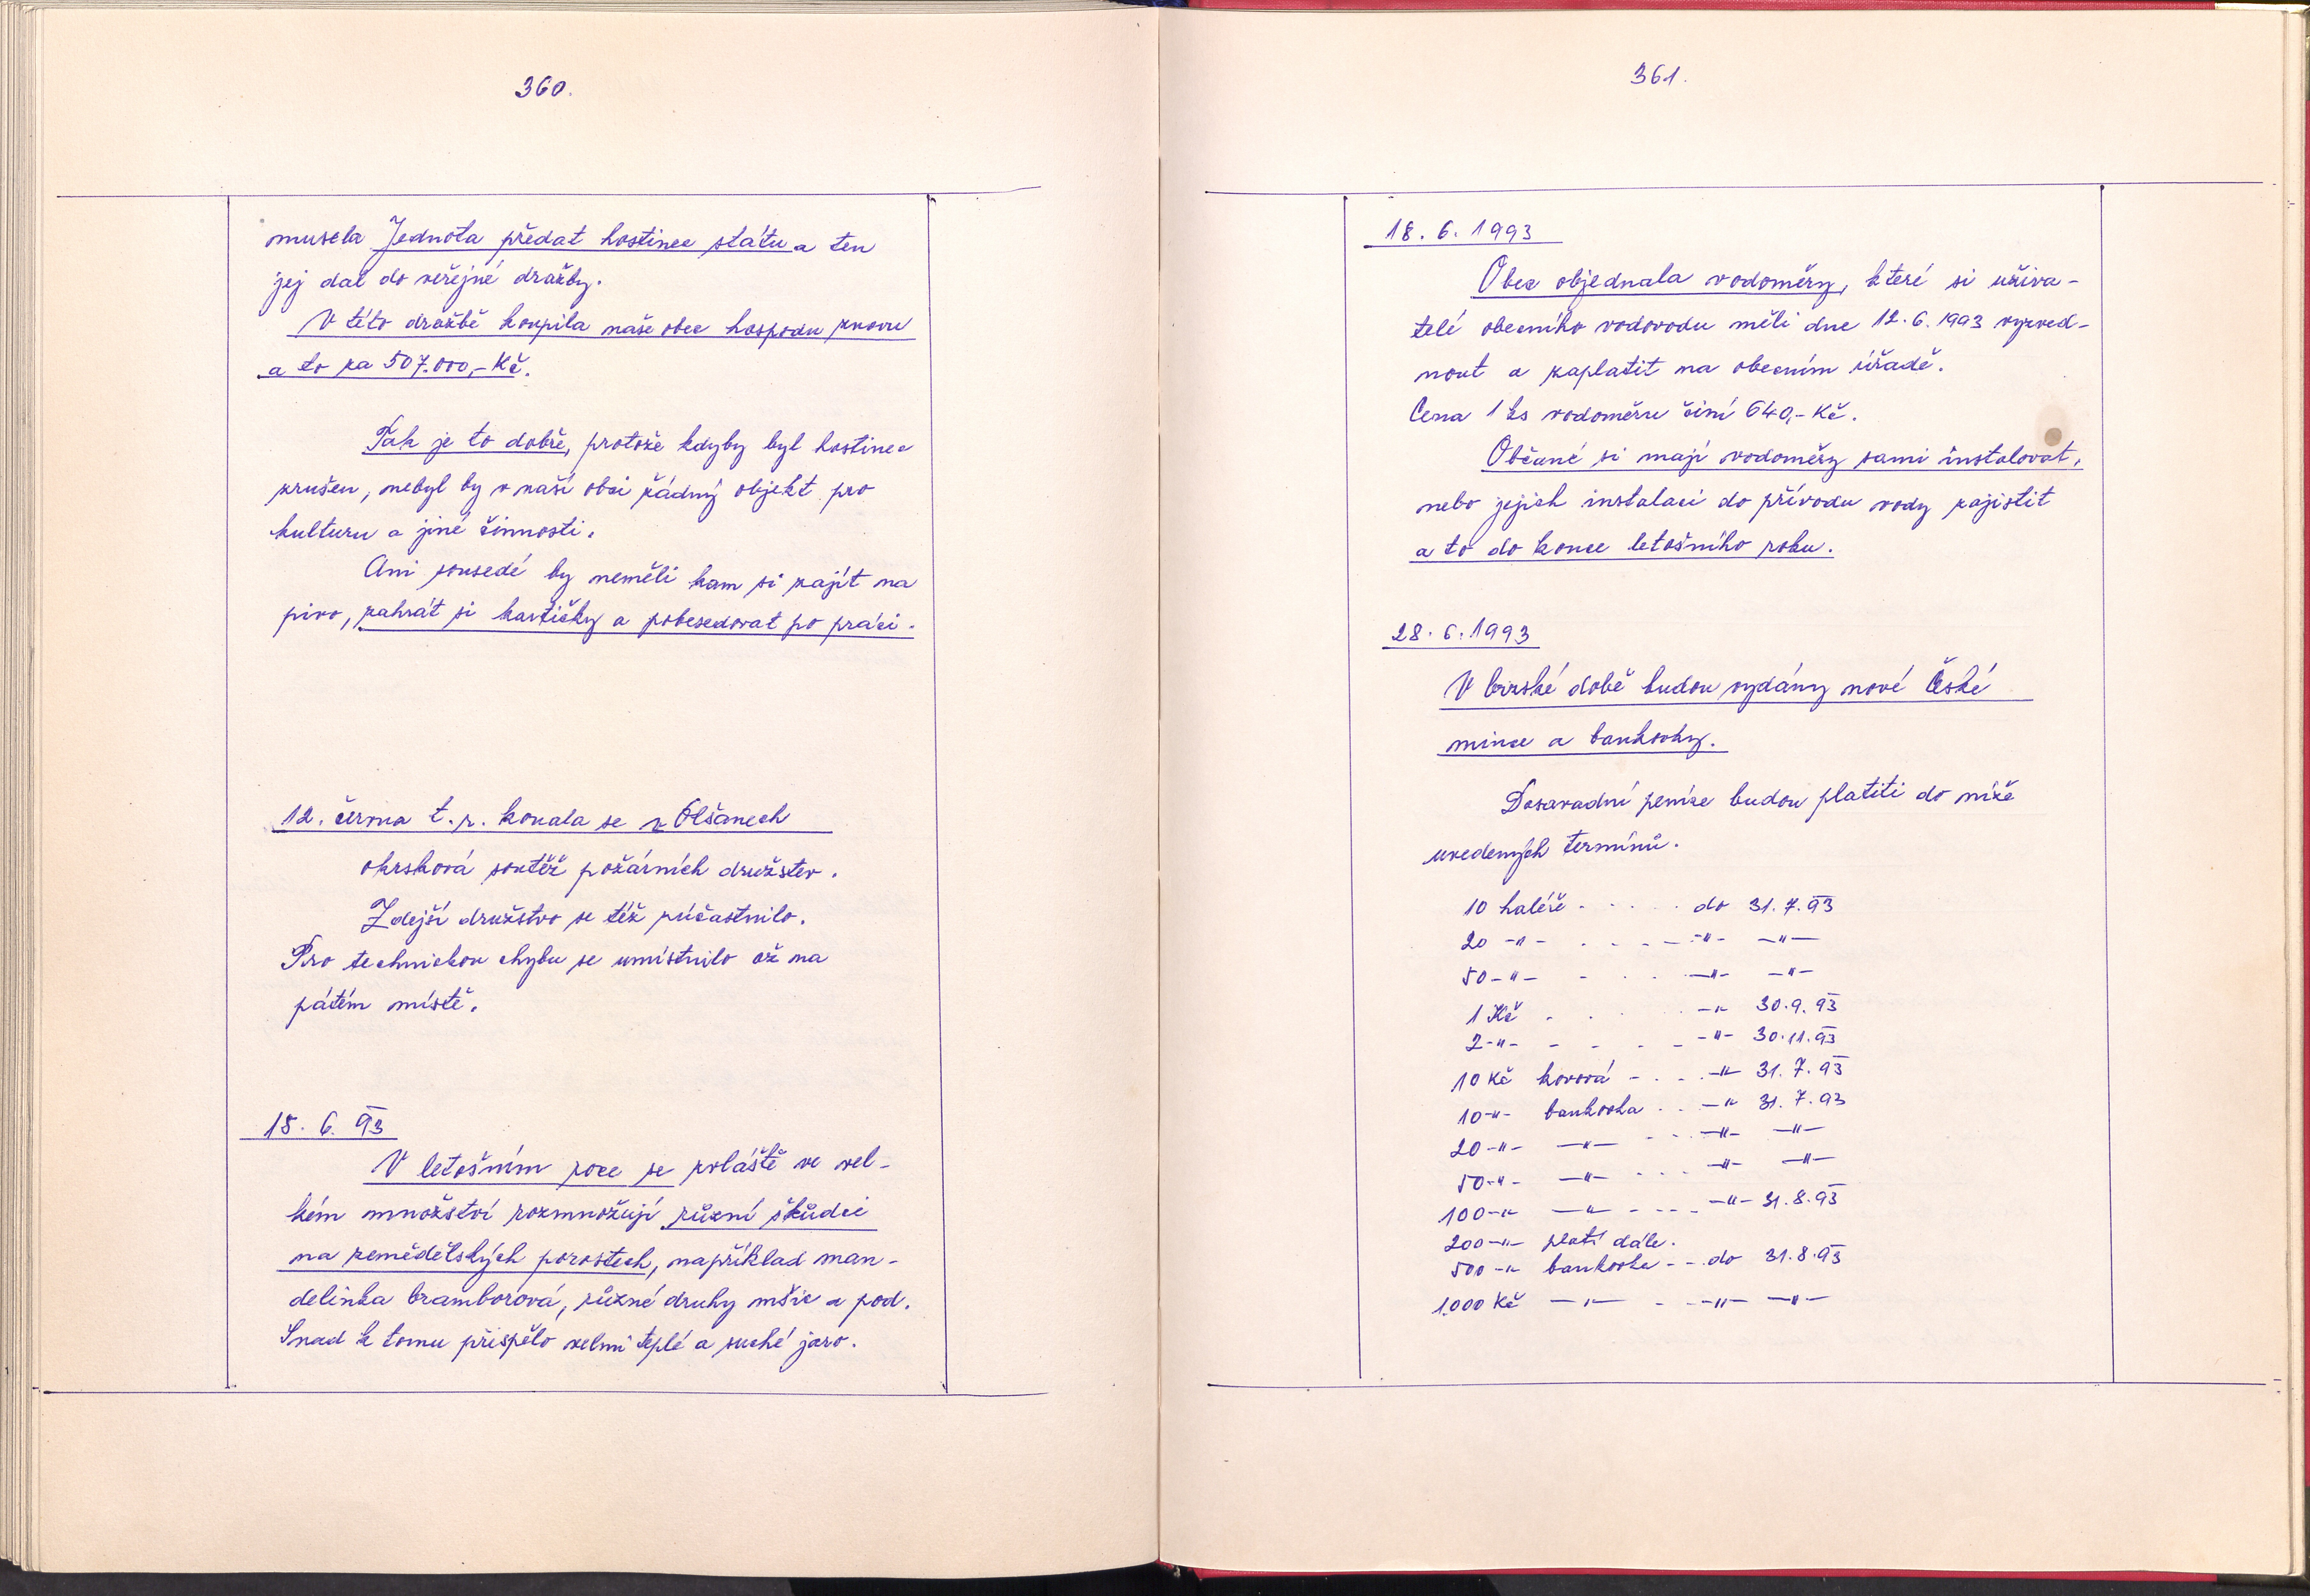 360.
musela Jednota předat hostinec státu a ten
jej dal do veřejné dražby.
V této dražbě koupila naše obec hospodu znovu
a to za 507.000,- Kč.
Tak je to dobře, protože kdyby byl hostinec
zrušen, nebyl by v naší obci žádný objekt pro
kulturu a jiné činnosti.
Ani sousedé by neměli kam si zajít na
pivo, zahrát si kartičky a pobesedovat po práci.
12. června t. r. konala se v Olšanech
okrsková soutěž požárních družstev.
Zdejší družstvo se též zúčastnilo.
Pro technickou chybu se umístnilo až na
pátém místě.
15. 6. 93
V letošním roce se zvláště ve vel-
kém množství rozmnožují různí škůdci
na zemědělských porostech, například man-
delinka bramborová, různé druhy mšic a pod.
Snad k tomu přispělo velmi teplé a suché jaro.
361.
18. 6. 1993
Obec objednala vodoměry, které si uživa-
telé obecního vodovodu měli dne 12. 6. 1993 vyzved-
nout a zaplatit na obecním úřadě.
Cena 1 ks vodoměru činí 640,- Kč.
Občané si mají vodoměry sami instalovat,
nebo jejich instalaci do přívodu vody zajistit
a to do konce letošního roku.
28. 6. 1993
V brzské době budou vydány nové České
mince a bankovky.
Dosavadní peníze budou platiti do níže
uvedených termínů.
10 haléře - . . . . do 31. 7. 93
20 -"- . . . - -"- -"-
50 -"- - . . . -"- -"-
1 Kč . . . . -"- 30. 9. 93
2 -"- - - - - -"- 30. 11. 93
10 Kč kovová - . . . -"- 31. 7. 93
10 -"- bankovka . . -"- 31. 7. 93
20 -"- -"- - . . -"- -"-
50 -"- -"- - . . . -"- -"-
100 -"- -"- - - - - -"- 31. 8. 93
200 -"- platí dále.
500 -"- bankovka - - do 31. 8. 93
1.000 Kč -"- - - -"- -"-